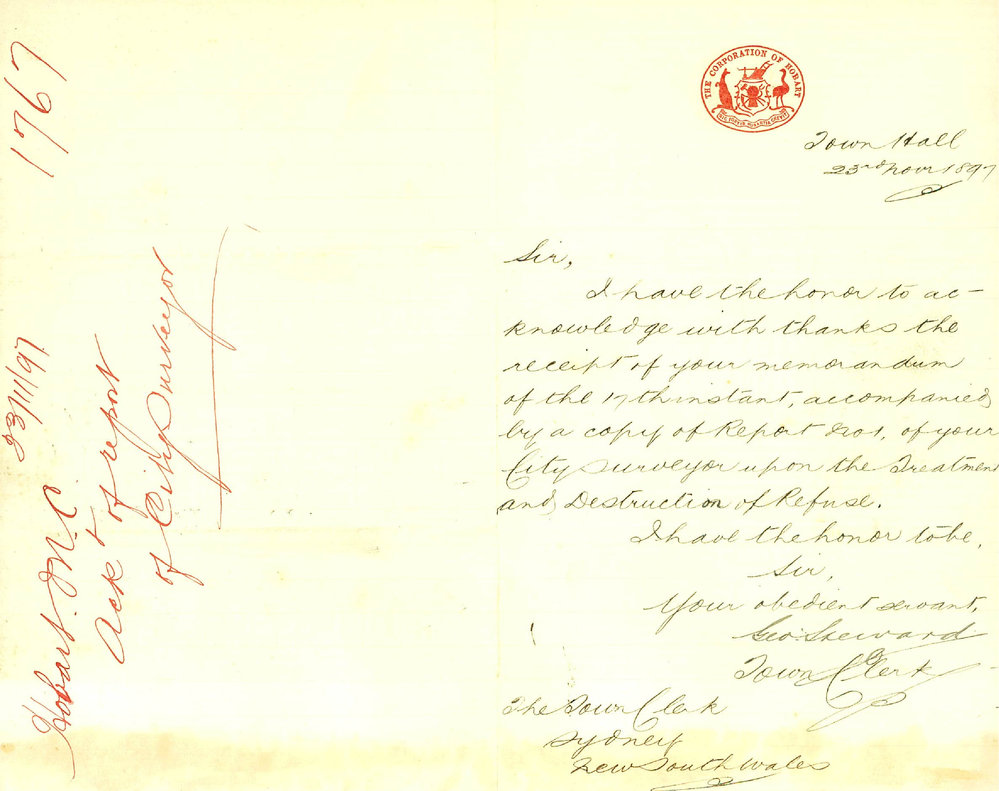 1767
Hobart. M.C 23/11/97
Ackt of report
of City Surveyor
THE CORPORATION OF HOBART
SIC FORTIS HOBARTIA CREVIT
Town Hall
23rd Novr 1897
Sir,
I have the honor to ac-
knowledge with thanks the
receipt of your memorandum
of the 17th instant, accompanied
by a copy of Report No 1, of your
City Surveyor upon the Treatment
and Destruction of Refuse.
I have the honor to be,
Sir,
Your obedient servant,
Geo: Steward
Town Clerk
The Town Clerk
Sydney
New South Wales